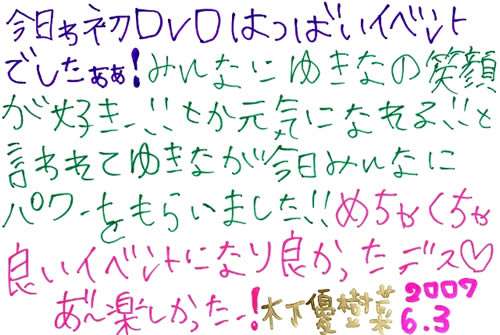 今日ゎ初DVDはつばいイベント
でしたぁぁ!みんなにゆきなの笑顔
が好きー!!とか元気になれる!!と
言われてゆきなが今日みんなに
パワーをもらいました!!めちゃくちゃ
良いイベントになり良かったデス♡
あ〜楽しかったー!木下優樹菜 2007
6.3